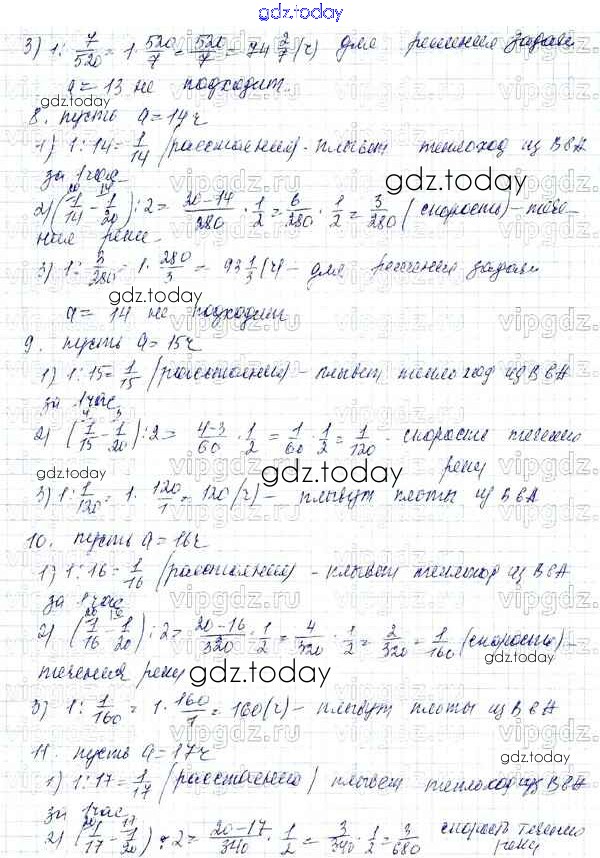 gdz.today
3) 1 : 7/520 = 1 · 520/7 = 520/7 = 74 2/7 (ч) для решения задачи
a = 13 не подходит.
gdz.today
8. пусть a = 14 ч
1) 1 : 14 = 1/14 (расстояния) - плывет теплоход из B в A
за 1 час
gdz.today
2) (1/14 - 1/20) : 2 = 20-14/280 · 1/2 = 6/280 · 1/2 = 3/280 (скорость) - тече-
ния реки -
3) 1 : 3/280 = 1 · 280/3 = 93 1/3 (ч) - для решения задачи
gdz.today
a = 14 не подходит
9. пусть a = 15 ч
1) 1 : 15 = 1/15 (расстояния) - плывет теплоход из B в A
за 1 час
2) (1/15 - 1/20) : 2 = 4-3/60 · 1/2 = 1/60 · 1/2 = 1/120 - скорость течения
реки
gdz.today
gdz.today
3) 1 : 1/120 = 1 · 120/1 = 120 (ч) - плывут плоты из B в A
10. пусть a = 16 ч
1) 1 : 16 = 1/16 (расстояния) - плывет теплоход из B в A
за 1 час
2) (1/16 - 1/20) : 2 = 20-16/320 · 1/2 = 4/320 · 1/2 = 2/320 = 1/160 (скорость) -
течения реки
gdz.today
gdz.today
3) 1 : 1/160 = 1 · 160/1 = 160 (ч) - плывут плоты из B в A
11. пусть a = 17 ч
1) 1 : 17 = 1/17 (расстояния) плывет теплоход из B в A
gdz.today
за 1 час
2) (1/17 - 1/20) : 2 = 20-17/340 · 1/2 = 3/340 · 1/2 = 3/680 скорость течения
реки
gdz.today